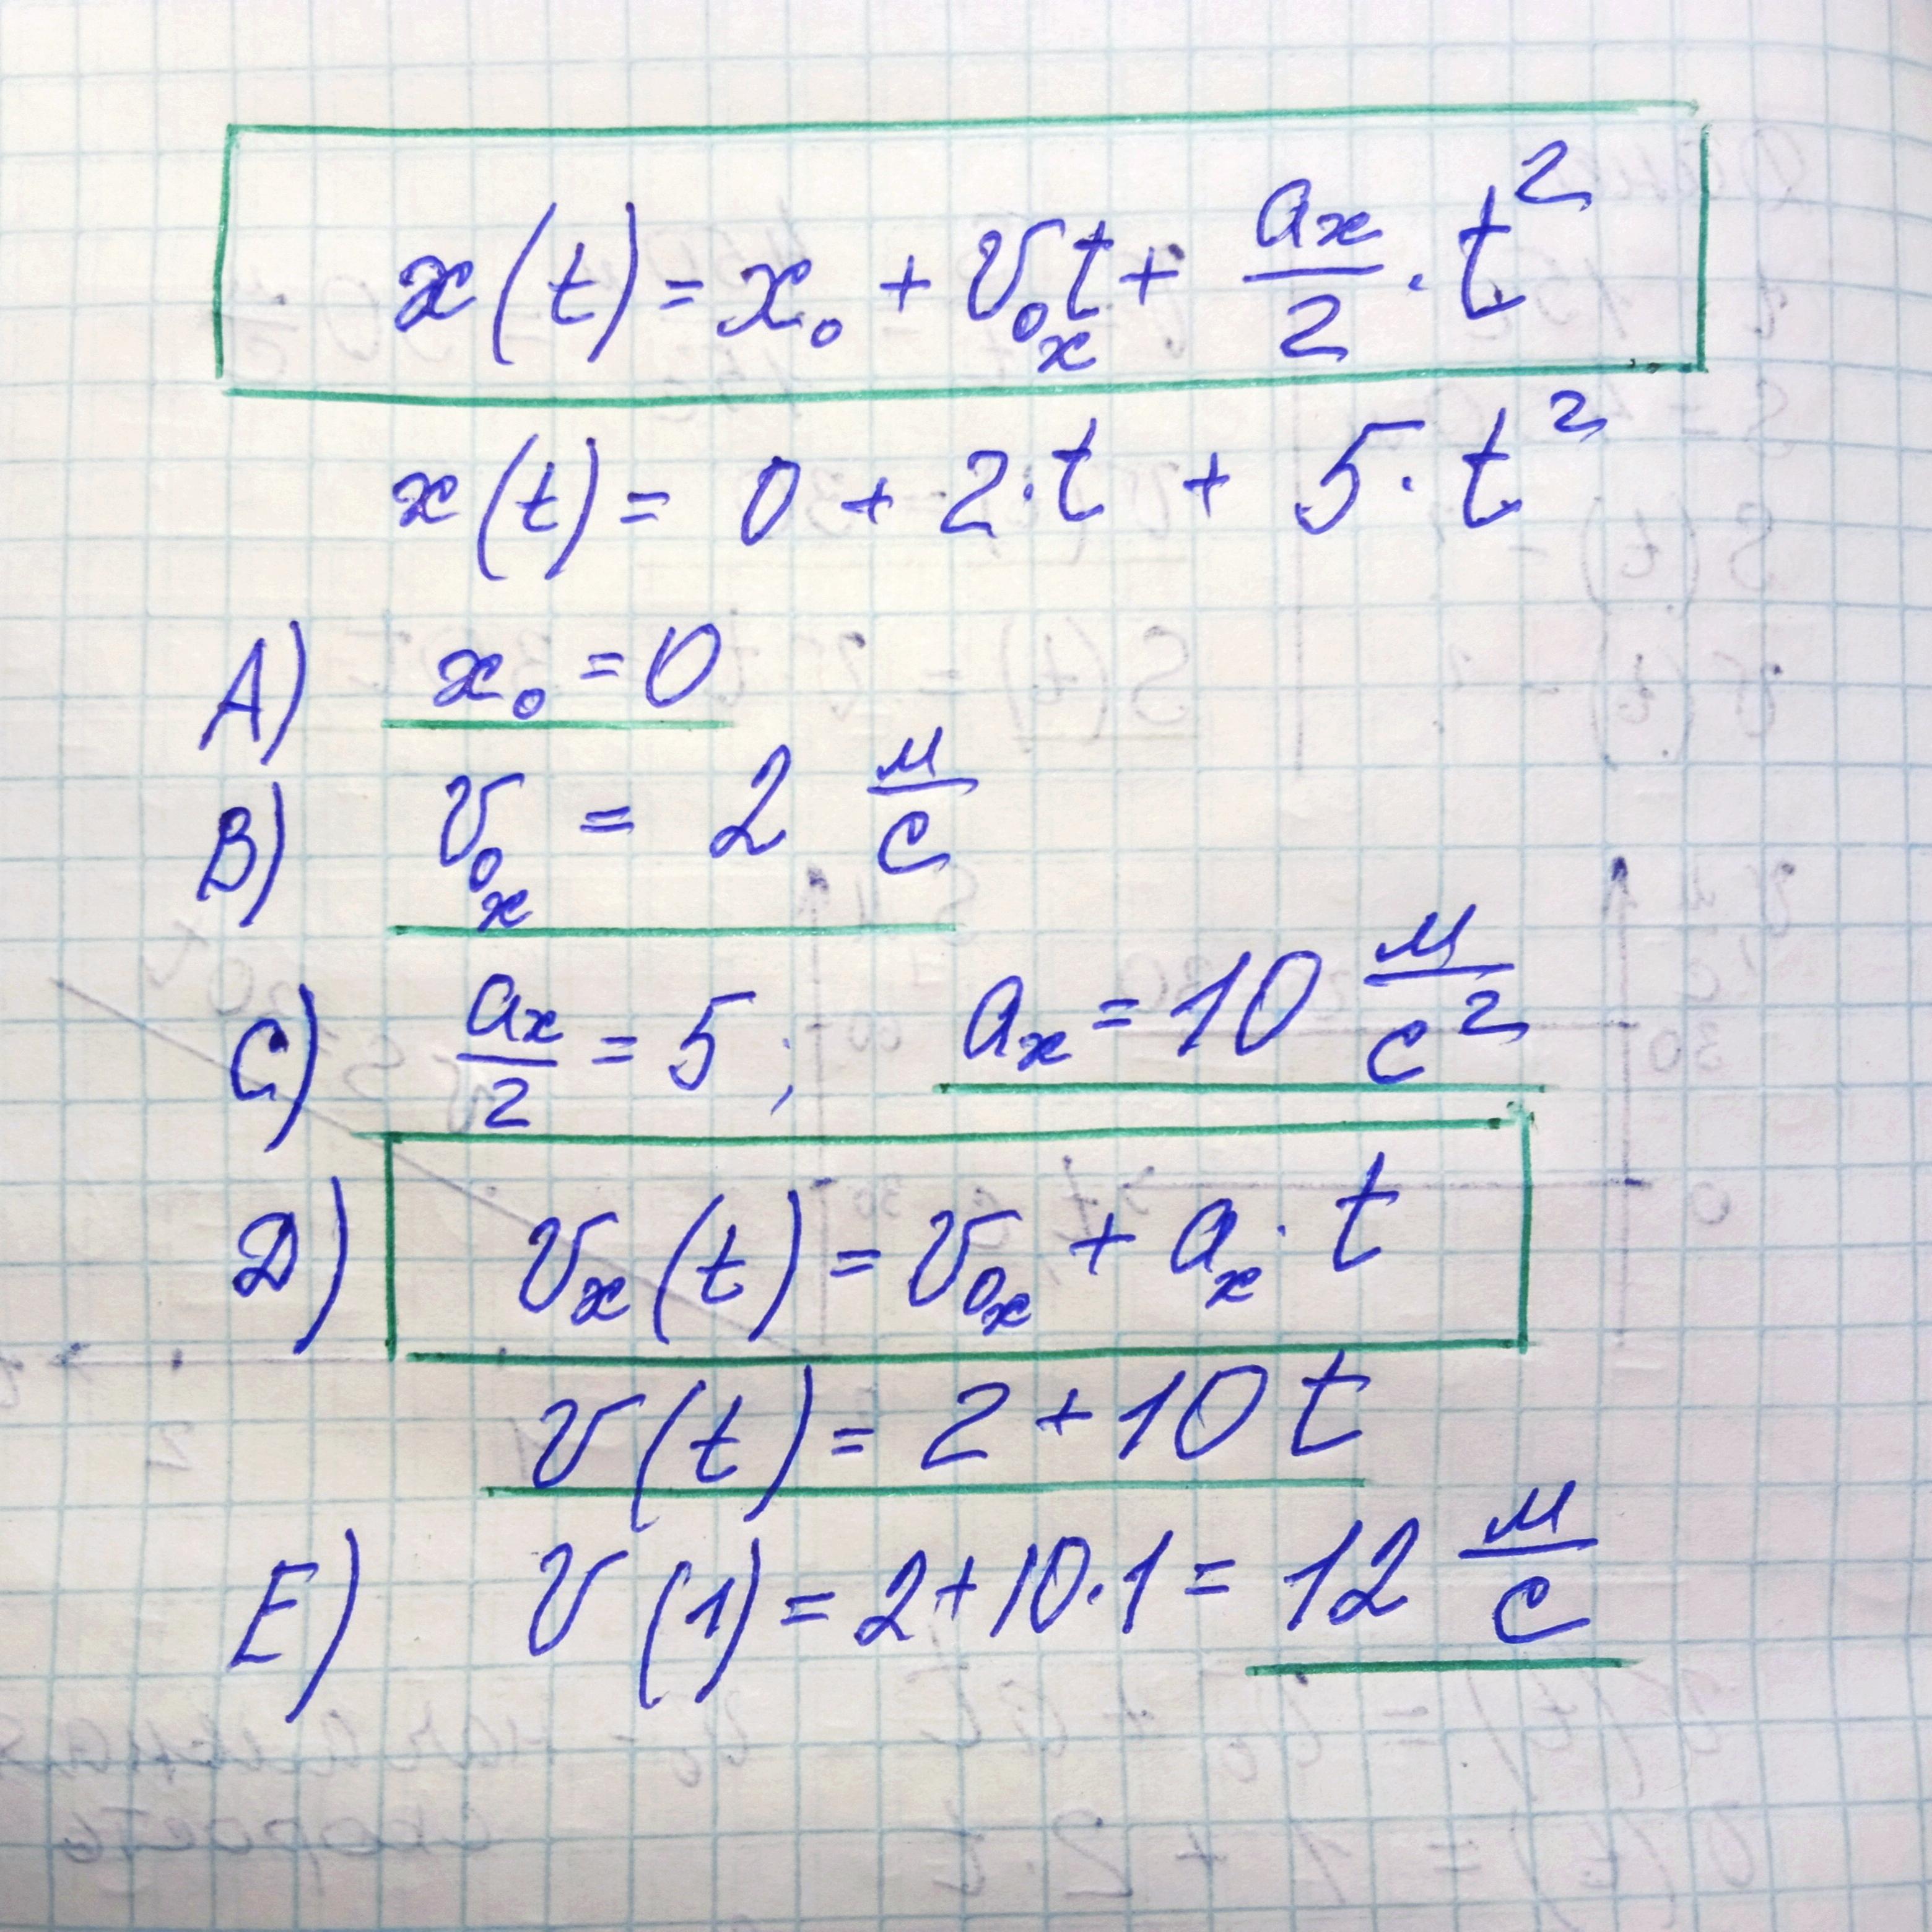 x(t) = x₀ + v₀ₓt + aₓ/2 · t²
x(t) = 0 + 2·t + 5·t²
A) x₀ = 0
B) v₀ₓ = 2 м/с
C) aₓ/2 = 5; aₓ = 10 м/с²
D) vₓ(t) = v₀ₓ + aₓ · t
v(t) = 2 + 10t
E) v(1) = 2+10·1 = 12 м/с